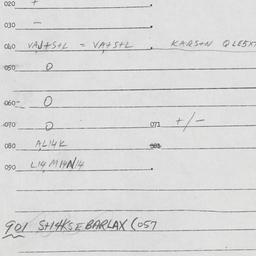 020 +
030 –
040 VAJ+S+L = VA+S+L . KARS+N QLE5X
050 O
060 O
070 O 073 +/-
080 AL14K
090 L14M14N14
901 SH4KSEBARLAX (057